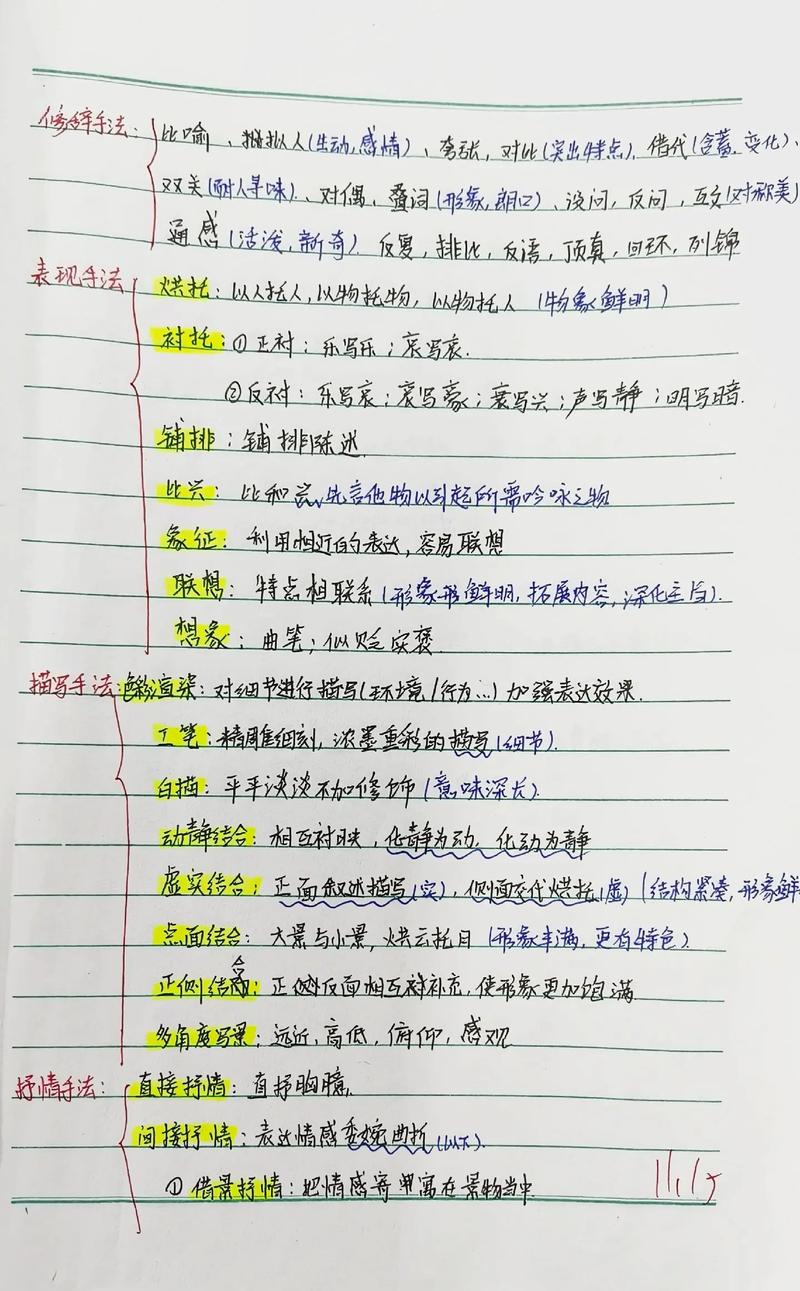 修辞手法：比喻、拟人(生动,感情)、夸张，对比(突出特点)、借代(含蓄,变化)、
双关(耐人寻味)、对偶，叠词(形象,朗口)、设问，反问，互文(对称美)
通感(活泼,新奇)．反复，排比，反语，顶真，回环，列锦
表现手法 烘托：以人托人，以物托物，以物托人（物象鲜明）
衬托：①正衬：乐写乐；哀写哀．
②反衬：乐写哀；哀写豪；衰写兴；声写静；明写暗．
铺排：铺排陈述
比兴：比和兴，先言他物以引起所需吟咏之物
象征：利用相近的表达，容易联想
联想：特点相联系(形象形鲜明，拓展内容，深化主旨)．
想象：曲笔；似贬实褒．
描写手法：色彩渲染：对细节进行描写(环境/行为…)加强表达效果．
工笔：精雕细刻，浓墨重彩的描写(细节)．
白描：平平淡淡不加修饰(意味深长)．
动静结合：相互衬映，化静为动，化动为静
虚实结合：正面叙述描写(实)，侧面交代烘托(虚)(结构紧凑，形象鲜
点面结合：大景与小景，烘云托月(形象丰满，更有特色)．
正侧结合：正侧反面相互补充，使形象更加饱满
多角度写景：远近，高低，俯仰，感观
抒情手法：直接抒情：直抒胸臆．
间接抒情：表达情感委婉曲折(以下)．
①借景抒情：把情感寄寓在景物当中．
11.15